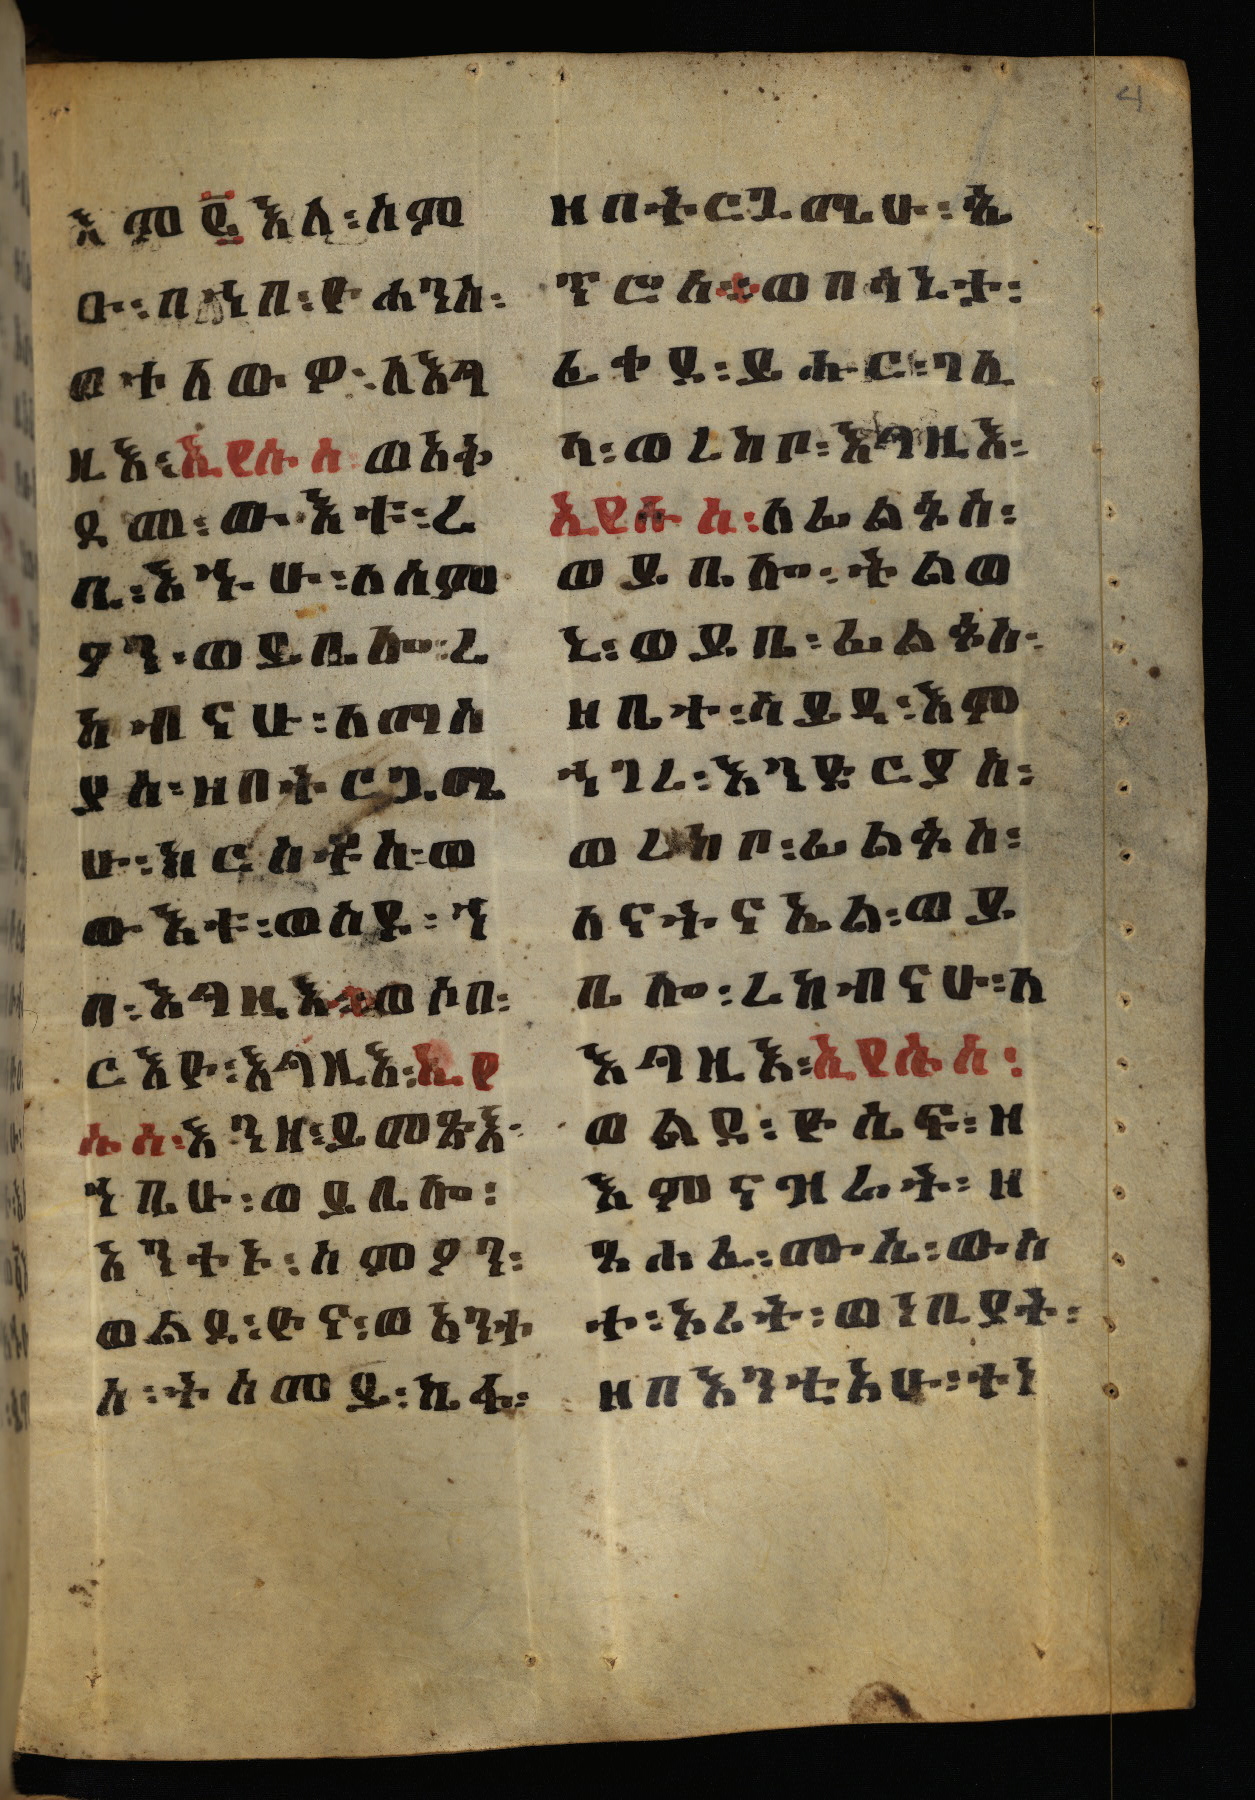 እም፪እለ፡ሰም
ዑ፡በኀበ፡ዮሐንስ፡
ወተለውዎ፡ለእግ
ዚእ፡ኢየሱስ፡ወእቱ
ደመ፡ውእቱ፡ረ
ቢ፡እኅሁ፡ለስምዖ
ዖን፡ወይቤሎ፡ረ
ከብናሁ፡ለማስ
ያስ፡ዘበትርጓሜ
ሁ፡ክርስቶስ፡ወ
ውእቱ፡ወሰዶ፡ኀ
በ፡እግዚእ፡ወሶበ፡
ርእዮ፡እግዚእ፡ኢየ
ሱስ፡እንዘ፡ይመጽእ፡
ኀቤሁ፡ወይቤሎ፡
እንተኑ፡ስምዖን፡
ወልደ፡ዮና፡ወአንተ
ሰ፡ትሰመይ፡ኬፋ፡
ዘበትርጓሜሁ፡ጴ
ጥሮስ፡ወበሳኒታ፡
ፈቀደ፡ይሑር፡ገሊ
ላ፡ወረከቦ፡እግዚእ፡
ኢየሱስ፡ለፊልጶስ፡
ወይቤሎ፡ትልወ
ኒ፡ወይቤ፡ፊልጶስ፡
ዘቤተ፡ሳይዳ፡እም
ኀገረ፡እንድርያስ፡
ወረከቦ፡ፊልጶስ፡
ለናትናኤል፡ወይ
ቤሎ፡ረከብናሁ፡ለ
እግዚእ፡ኢየሱስ፡
ወልደ፡ዮሴፍ፡ዘ
እምናዝሬት፡ዘ
ጸሐፈ፡ሙሴ፡ውስ
ተ፡ኦሪት፡ወነቢያት፡
ዘበእንቲአሁ፡ተነ